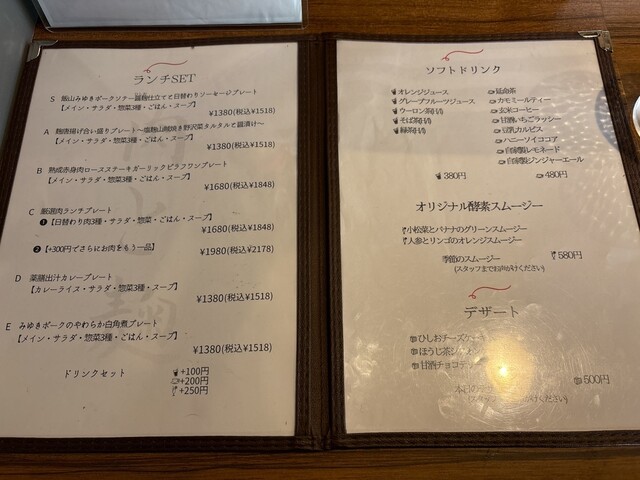 ランチSET
S 飯山みゆきポークソテー醤麹仕立てと日替わりソーセージプレート
【メイン・サラダ・惣菜3種・ごはん・スープ】
¥1380(税込¥1518)
A 麹唐揚げ合い盛りプレート～塩麹山賊焼き野沢菜タルタルと醤漬け～
【メイン・サラダ・惣菜3種・ごはん・スープ】
¥1380(税込¥1518)
B 熟成赤身肉ロースステーキガーリックピラフワンプレート
【メイン・サラダ・惣菜3種・ごはん・スープ】
¥1680(税込¥1848)
C 厳選肉ランサプレート
❶【日替わり肉3種・サラダ・惣菜・ごはん・スープ】
¥1680(税込¥1848)
❷【+300円でさらにお肉をもう一品】
¥1980(税込¥2178)
D 薬膳出汁カレープレート
【カレーライス・サラダ・惣菜3種・スープ】
¥1380(税込¥1518)
E みゆきポークのやわらか白角煮プレート
【メイン・サラダ・惣菜3種・ごはん・スープ】
¥1380(税込¥1518)
ドリンクセット
+100円
+200円
+250円
ソフトドリンク
オレンジジュース
グレープフルーツジュース
ウーロン茶
そば茶
緑茶
380円
カモミールティー
玄米コーヒー
甘酒いちごラッシー
豆乳カルピス
ハニーソイココア
自家製レモネード
自家製ジンジャーエール
480円
オリジナル酵素スムージー
小松菜とバナナのグリーンスムージー
人参とリンゴのオレンジスムージー
季節のスムージー
580円
(スタッフまでお声がけください)
デザート
ひしおチーズケーキ
ほうじ茶
甘酒チョコ
500円
本日の
(スタッフ
けください)